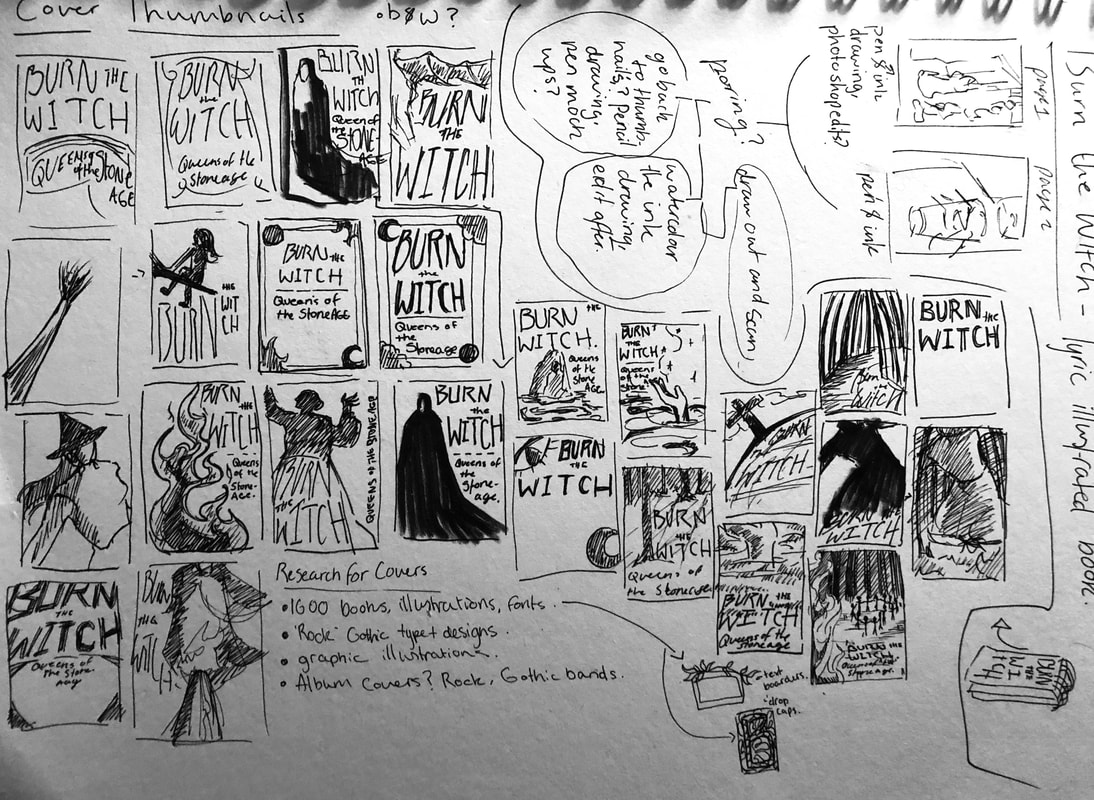 Cover Thumbnails
• b&w?
BURN THE
WITCH
QUEENS
of the STONE
AGE
BURN
the
WITCH
Queens of the
Stoneage
BURN
TH
WITCH
Queen
of the
STONE
AGE
BURN
THE
WITCH
BURN
THE
WIT
CH
BURN THE
WITCH
Queens of
the Stone AGE
BURN
the
WITCH
Queens of
the Stoneage
BURN
the
WITCH
Queens
of the
Stone
Age.
BURN
THE
WITCH
QUEENS OF THE STONE AGE
BURN
the
WITCH
Queens of
the
Stone-
age.
BURN
THE
WITCH
Queens of
the Stone-
age
BURN
THE
WITCH.
BURN THE
WITCH.
Queens
of the
Stone
AGE
BURN
THE
WITCH
Queens
of the
Stone
BURN
THE
WITCH
BURN
THE
WITCH
Queens of
the Stoneage
BURN
THE
WITCH
BURN THE
WITCH
Queens of the
Stoneage
Burn
the
WITCH
BURN the
WITCH
BURN THE
WITCH
BURN THE
WITCH
Research for Covers
• 1600 books, illustrations, fonts.
• 'Rock' Gothic type + designs.
• graphic illustrations.
• Album Covers? Rock, Gothic bands.
- text
boarders.
- drop
caps.
Burn the Witch - lyric illustrated book.
page 1
page 2
pen & ink
drawing,
photoshop edit?
pen & ink
draw out and scan,
go back
to thumb-
nails? Pencil
drawing,
pen mock
ups?
watercolour
the ink
drawing,
edit after.
BURN
THE
WIT
CH